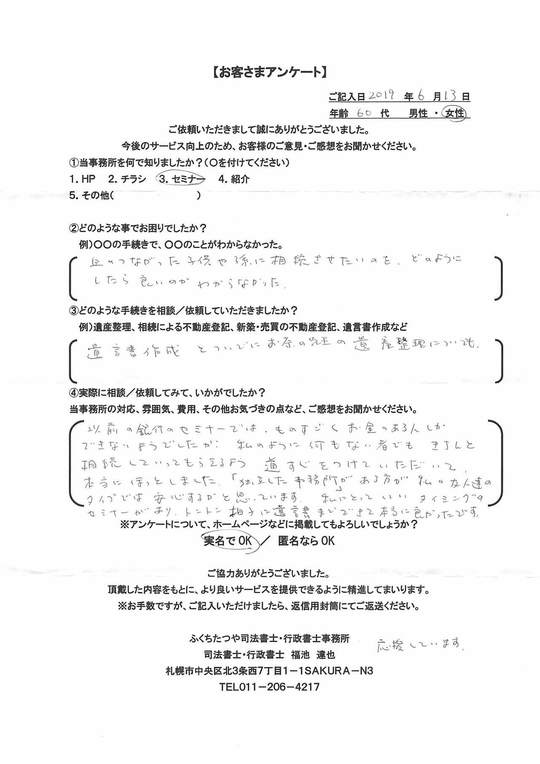 【お客さまアンケート】
ご記入日 2019 年 6 月 13 日
年齢 60 代 男性 ・ 女性
ご依頼いただきまして誠にありがとうございました。
今後のサービス向上のため、お客様のご意見・ご感想をお聞かせください。
①当事務所を何で知りましたか?(〇を付けてください)
1. HP 2. チラシ 3. セミナー 4. 紹介
5. その他( )
②どのような事でお困りでしたか?
例)〇〇の手続きで、〇〇のことがわからなかった。
血のつながった子供や孫に相続させたいのを、どのように
したら良いのかわからなかった。
③どのような手続きを相談/依頼していただきましたか?
例)遺産整理、相続による不動産登記、新築・売買の不動産登記、遺言書作成など
遺言書作成 とついでにお茶の先生の遺産整理についても。
④実際に相談/依頼してみて、いかがでしたか?
当事務所の対応、雰囲気、費用、その他お気づきの点など、ご感想をお聞かせください。
以前の銀行のセミナーでは、ものすごくお金のある人しか
できないようでしたが、私のように何もない者でも きちんと
相続していってもらえるよう 道すじをつけていただいて、
本当にほっとしました。「独立した事務所」がある方が 私の友人達の
タイプでは安心するかと思っています。私にとっていいタイミングの
セミナーがあり、トントン拍子に遺言書までできて本当に良かったです。
※アンケートについて、ホームページなどに掲載してもよろしいでしょうか?
実名でOK / 匿名ならOK
ご協力ありがとうございました。
頂戴した内容をもとに、より良いサービスを提供できるように精進してまいります。
※お手数ですが、ご記入いただけましたら、返信用封筒にてご返送ください。
ふくちたつや司法書士・行政書士事務所
応援しています。
司法書士・行政書士 福池 達也
札幌市中央区北3条西7丁目1-1SAKURA-N3
TEL011-206-4217